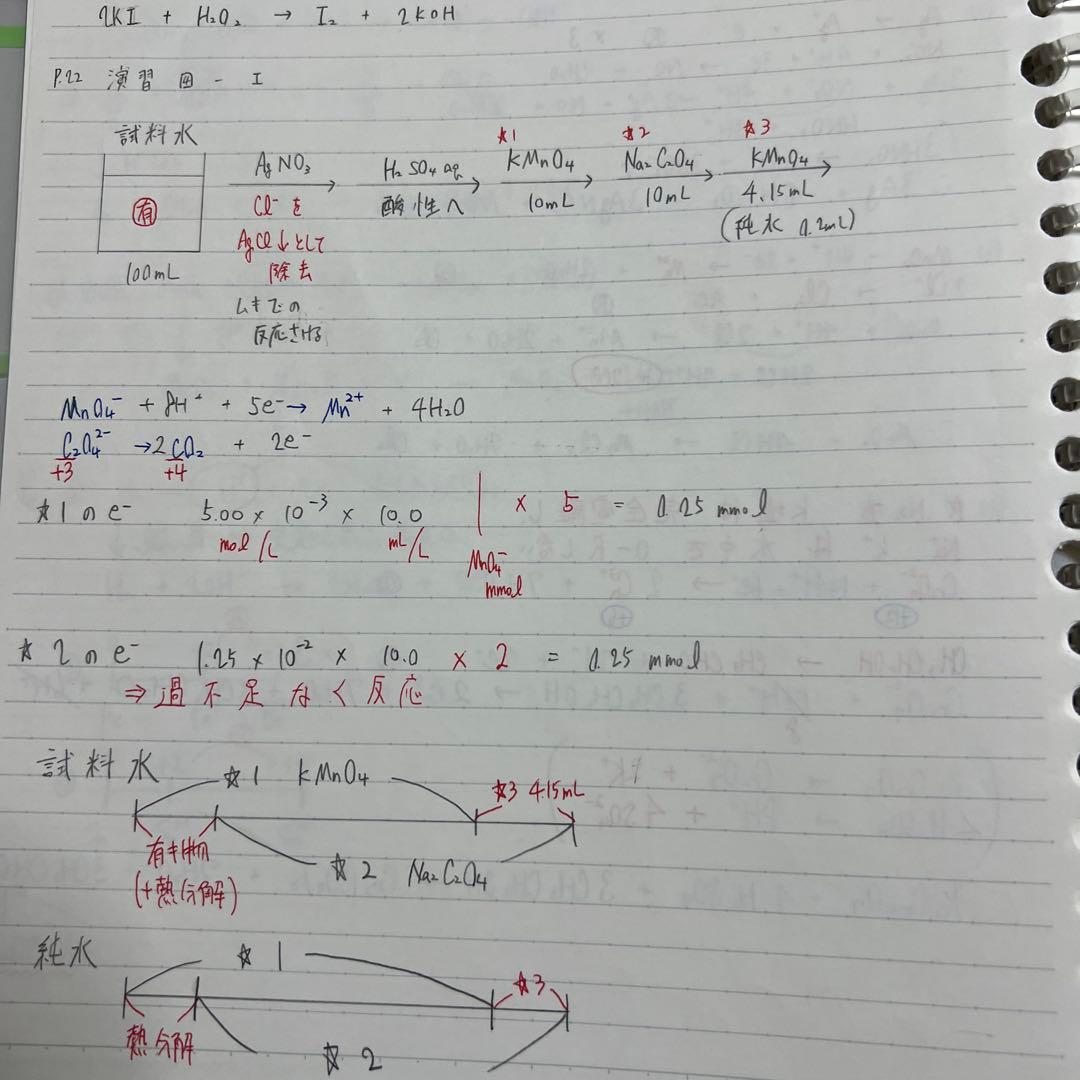 2KI + H₂O₂ → I₂ + 2KOH
P.22 演習 四 - I
試料水
有
100mL
AgNO₃
Cl⁻を
AgCl↓として
除去
反応させる
H₂SO₄ aq
酸性へ
☆1
KMnO₄
10mL
☆2
Na₂C₂O₄
10mL
☆3
KMnO₄
4.15mL
(純水 0.2mL)
MnO₄⁻ + 8H⁺ + 5e⁻ → Mn²⁺ + 4H₂O
C₂O₄²⁻ → 2CO₂ + 2e⁻
+3 +4
☆1のe⁻ 5.00 × 10⁻³ × 10.0 | × 5 = 0.25 mmol
mol/L mL/L MnO₄⁻
mmol
☆2のe⁻ 1.25 × 10⁻² × 10.0 × 2 = 0.25 mmol
⇒ 過不足なく反応
試料水
☆1 KMnO₄ ☆3 4.15mL
有キ物
(+熱分解)
☆2 Na₂C₂O₄
純水
☆1 ☆3
熱分解
☆2